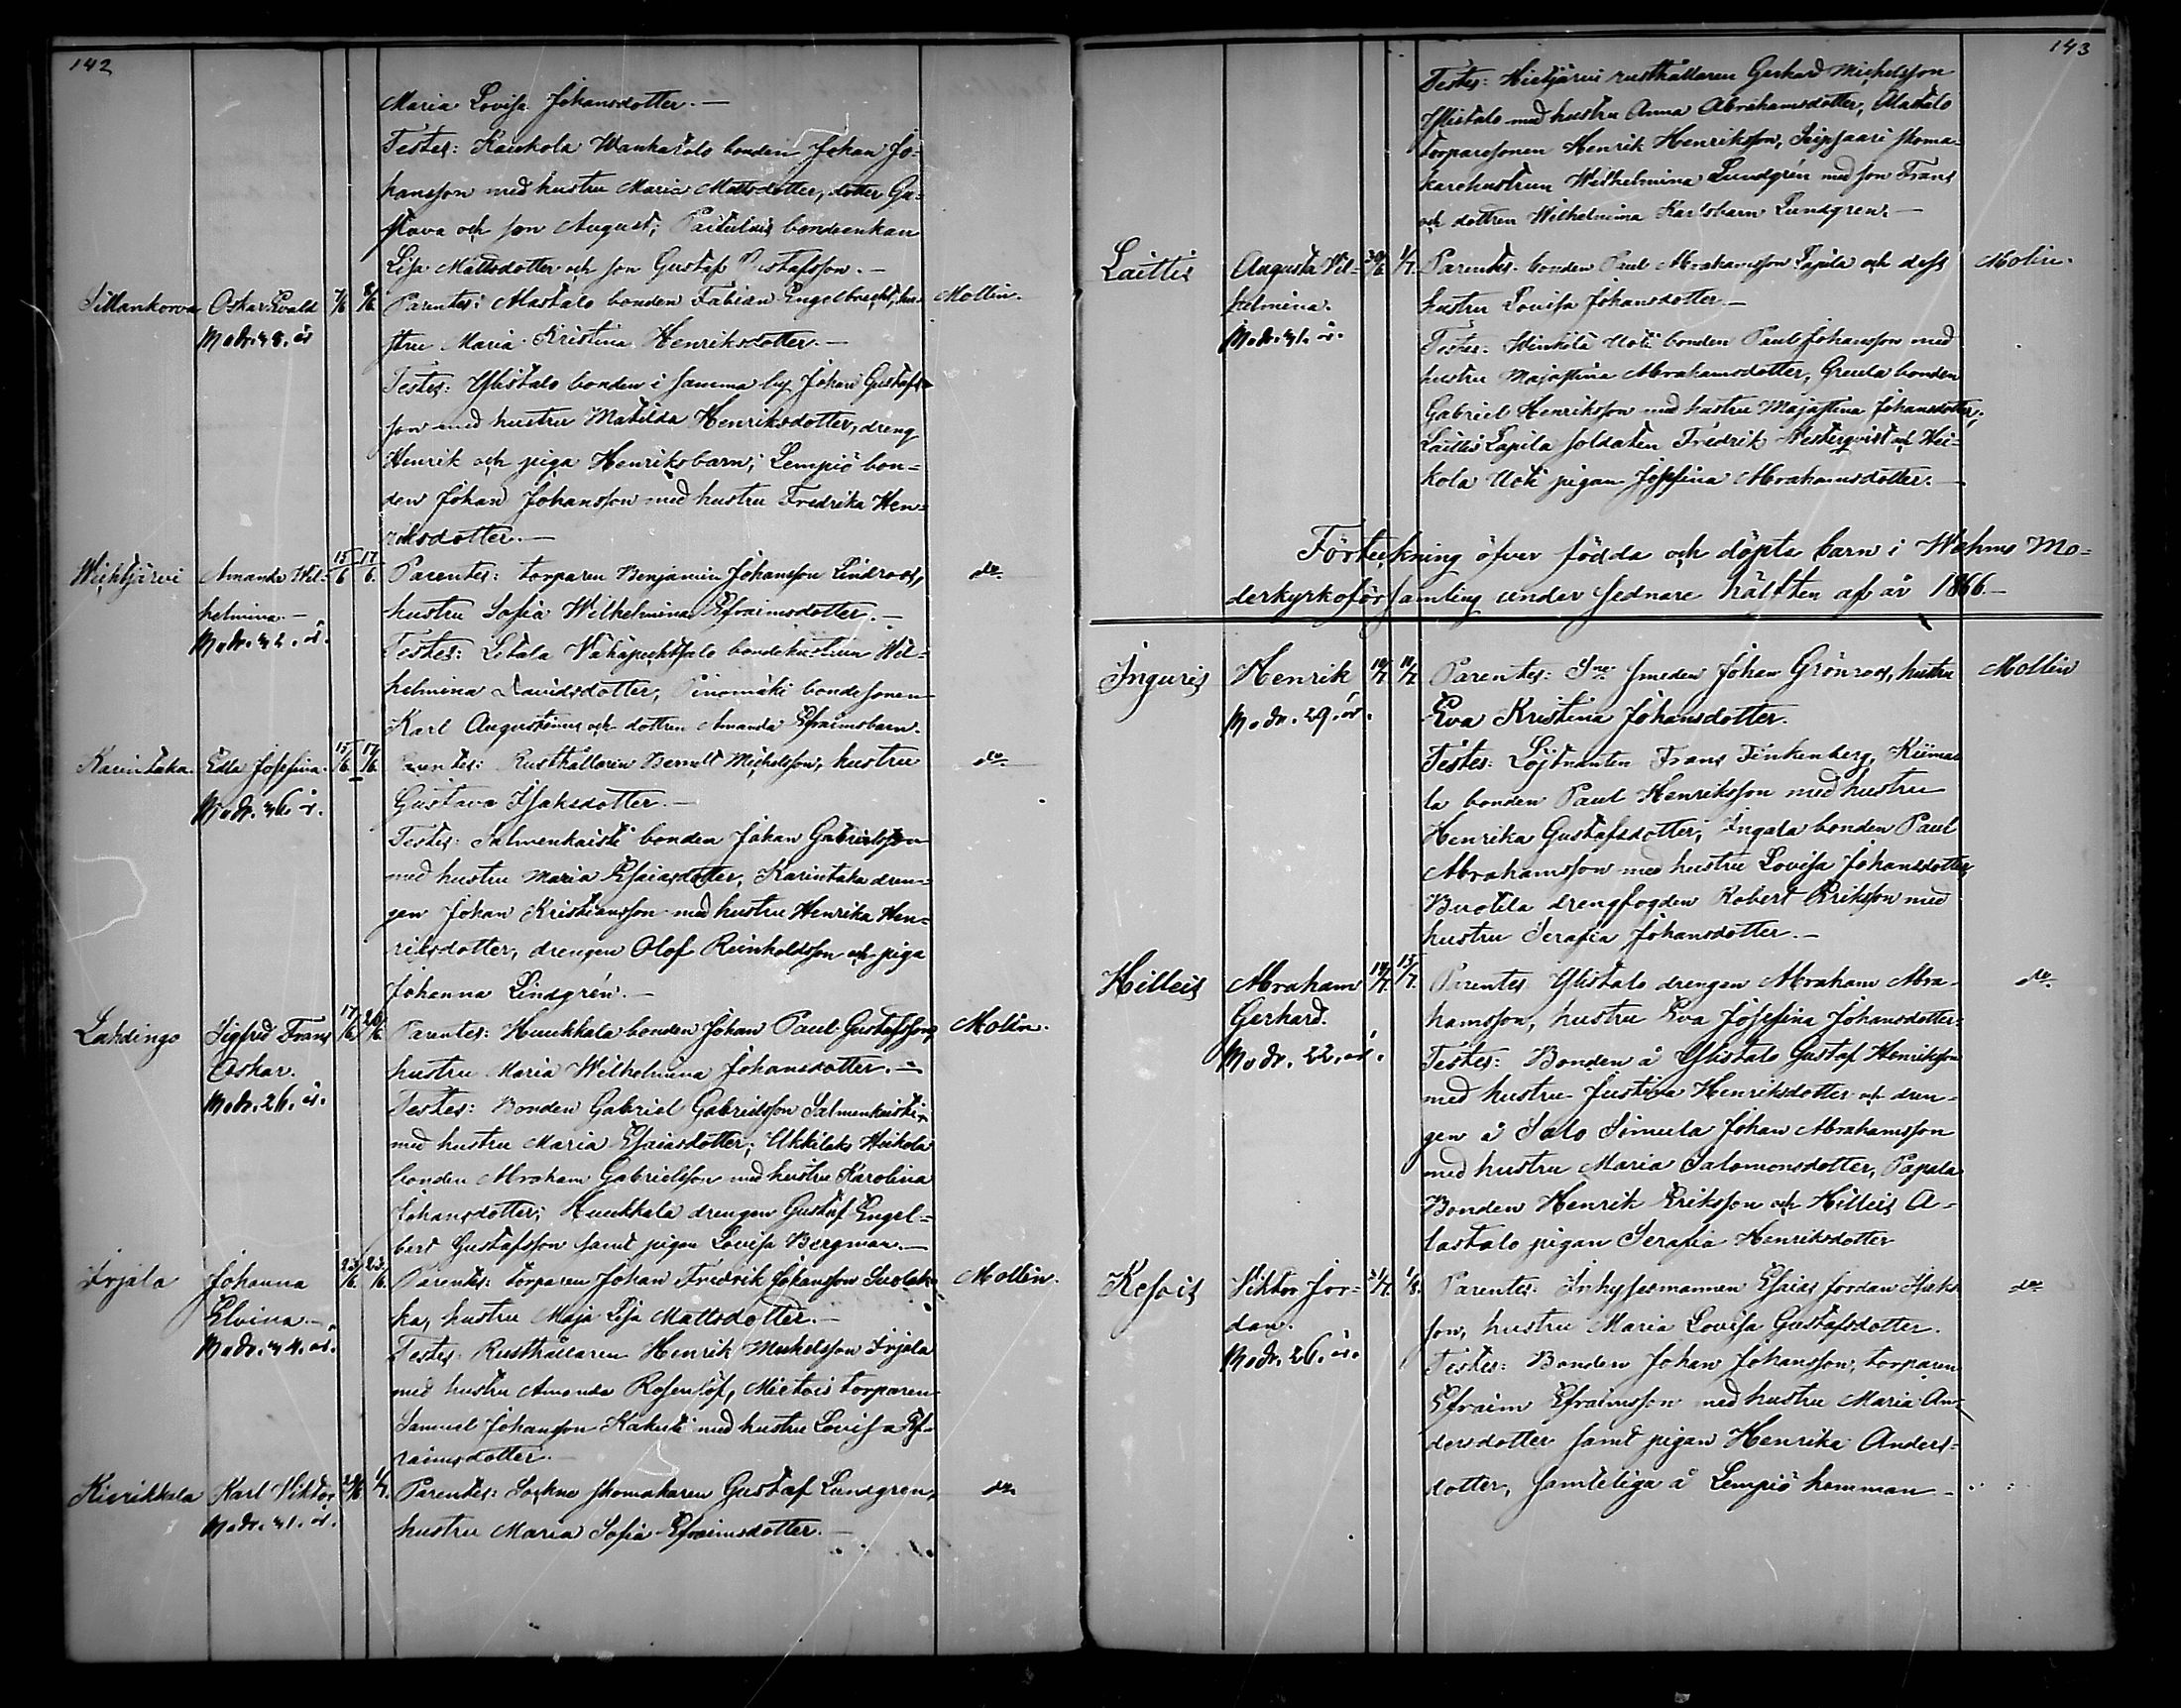 142
Maria Lovisa Johansdotter. —
Testes: Kaukola Wanhatalo bonden Johan Jo-
hansson med hustru Maria Mattsdotter, dotter Gu-
stava och son August; bondeenkan
Lisa Mattsdotter och son Gustaf Gustafsson. —
Sillankorva Oskar Evald 7/6 8/6 Parentes: Alastalo bonden Fabian Engelbrecht, hu- Mollin.
Modr. 38. år stru Maria Kristina Henriksdotter. —
Testes: Ylistalo bonden i samma by Johan Gustafs-
son med hustru Matilda Henriksdotter, dreng
Henrik och piga Henriksbarn; Lempiö bon-
den Johan Johansson med hustru Fredrika Hen-
riksdotter. —
Wiehtjärvi Amanda Wil- 15/6 17/6 Parentes: torparen Benjamin Johansson Lindroos, do
helmina — hustru Sofia Wilhelmina Efraimsdotter. —
Modr. 32. år. Testes: Letala bondehustrun Wil-
helmina Davidsdotter, Pinomäki bondesonen
Karl Augustinus och dottren Amanda Efraimsbarn.
Karintaka. Edla Josefina. 15/6 17/6 Parentes: Rusthållaren Berndt Michelsson, hustru do
Modr. 36 år. Gustava Isaksdotter. —
Testes: Salmenkaisti bonden Johan Gabrielsson
med hustru Maria Esaiasdotter, Karintaka dren-
gen Johan Kristiansson med hustru Henrika Hen-
riksdotter, drengen Olof Reinholdsson och piga
Johanna Lindgrén. —
Lahdingo Sigfrid Frans 17/6 20/6 Parentes: Huukkala bonden Johan Paul Gustafsson, Molin.
Oskar. hustru Maria Wilhelmina Johansdotter. —
Modr. 26. år. Testes: Bonden Gabriel Gabrielsson Salmenkaisti
med hustru Maria Esaiasdotter; Ukkilaks Heikola
bonden Abraham Gabrielsson med hustru Karolina
Johansdotter; Huukkala drengen Gustaf Engel-
bert Gustafsson samt pigan Lovisa Bergman. —
Irjala Johanna 23/6 23/6 Parentes: torparen Johan Fredrik Johansson Mollin.
Elvina. — hustru Maja Lisa Mattsdotter. —
Modr. 34. år. Testes. Rusthållaren Henrik Michelsson Irjala
med hustru Amanda Rosenlöf, Mietois torparen
Samuel Johansson Kakuti med hustru Lovisa Ef-
raimsdotter. —
Kierikkala Karl Viktor 29/6 1/7. Parentes: Sockne skomakaren Gustaf Lundgren, do
Modr. 31. år. hustru Maria Sofia Efraimsdotter. —
143
Testes: Hietjärvi rusthållaren Gerhard Michelsson
Ylistalo med hustru Anna Abrahamsdotter, Alastalo
torparesonen Henrik Henriksson, Seipsaari skoma-
karehustrun Wilhelmina Lundgrén med son Frans
och dottren Wilhelmina Karlsbarn Lundgren. —
Laittis Augusta Wil- 30/6 1/7. Parentes. bonden Paul Abrahamsson Lapila och dess Molin.
helmina. hustru Lovisa Johansdotter —
Modr. 31. år. Testes: Uoti bonden Paul Johansson med
hustru Majastina Abrahamsdotter, Greula bonden
Gabriel Henriksson med hustru Majastina Johansdotter,
Laittis Lapila soldaten Fredrik Westerqvist och Hei-
kola Uoti pigan Josefina Abrahamsdotter. —
Förteckning öfver födda och döpta barn i Wehmo Mo-
derkyrkoförsamling under sednare hälften af år 1866. —
Inguris Henrik 10/7 11/7. Parentes: Sne smeden Johan Grönroos, hustru Mollin
Modr. 29. år. Eva Kristina Johansdotter.
Testes: Löjtnanten Frans Finkenberg, Kiimas
la bonden Paul Henriksson med hustru
Henrika Gustafsdotter; Ingala bonden Paul
Abrahamsson med hustru Lovisa Johansdotter,
Buotila drengfogden Robert Eriksson med
hustru Serafia Johansdotter. —
Hilleis Abraham 14/7. 15/7. Parentes Ylistalo drengen Abraham Abra- do
Gerhard. hamsson, hustru Eva Josefina Johansdotter.
Modr. 22. år. Testes: Bonden å Ylistalo Gustaf Henriksson
med hustru Justina Henriksdotter och dren-
gen å Salo Simula Johan Abrahamsson
med hustru Maria Salomonsdotter, Papala
Bonden Henrik Eriksson och Hilleis A-
lastalo pigan Serafia Henriksdotter
Kesois Viktor Jor- 31/7. 1/8. Parentes. Inhysesmannen Esaias Jordan Isaks- do
dan. son, hustru Maria Lovisa Gustafsdotter.
Modr. 26. år. Testes: Bonden Johan Johansson, torparen
Efraim Efraimsson med hustru Maria An-
dersdotter samt pigan Henrika Anders-
dotter, samteliga å Lempiö hemman —